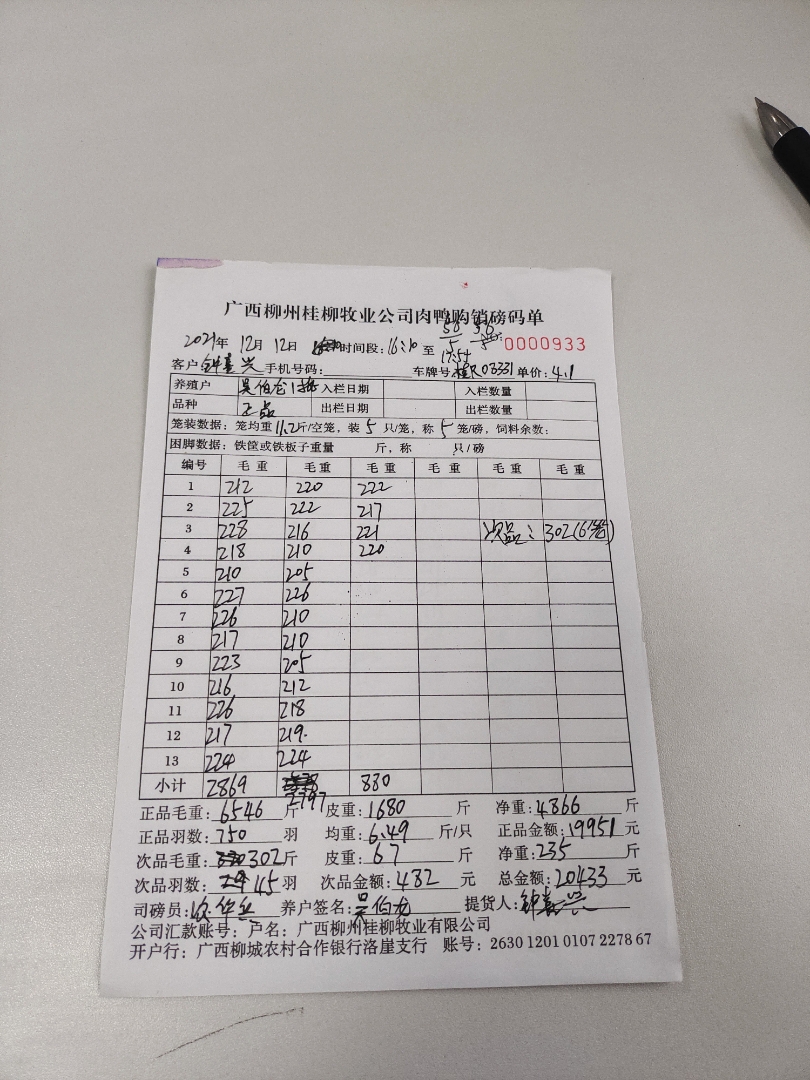 广西柳州桂柳牧业公司肉鸭购销磅码单
58 56
5 5
2021年 12月 12日 时间段: 16:10 至 17:54 0000933
客户 钟嘉兴 手机号码: 车牌号: 桂R03331 单价: 4.1
养殖户 吴伯龙 入栏日期 入栏数量
品种 正品 出栏日期 出栏数量
笼装数据: 笼均重 11.2 斤/空笼, 装 5 只/笼, 称 5 笼/磅, 饲料余数:
困脚数据: 铁筐或铁板子重量 斤, 称 只/磅
编号 毛重 毛重 毛重 毛重 毛重 毛重
1 212 220 222
2 225 222 217
3 228 216 221 次品: 302(6笼)
4 218 210 220
5 210 205
6 227 226
7 226 210
8 217 210
9 223 205
10 216 212
11 226 218
12 217 219
13 224 224
小计 2869 2797 880
正品毛重: 6546 斤 皮重: 1680 斤 净重: 4866 斤
正品羽数: 750 羽 均重: 6.49 斤/只 正品金额: 19951 元
次品毛重: 302 斤 皮重: 67 斤 净重: 235 斤
次品羽数: 45 羽 次品金额: 482 元 总金额: 20433 元
司磅员: 养户签名: 吴伯龙 提货人: 钟嘉兴
公司汇款账号: 户名: 广西柳州桂柳牧业有限公司
开户行: 广西柳城农村合作银行洛崖支行 账号: 2630 1201 0107 2278 67